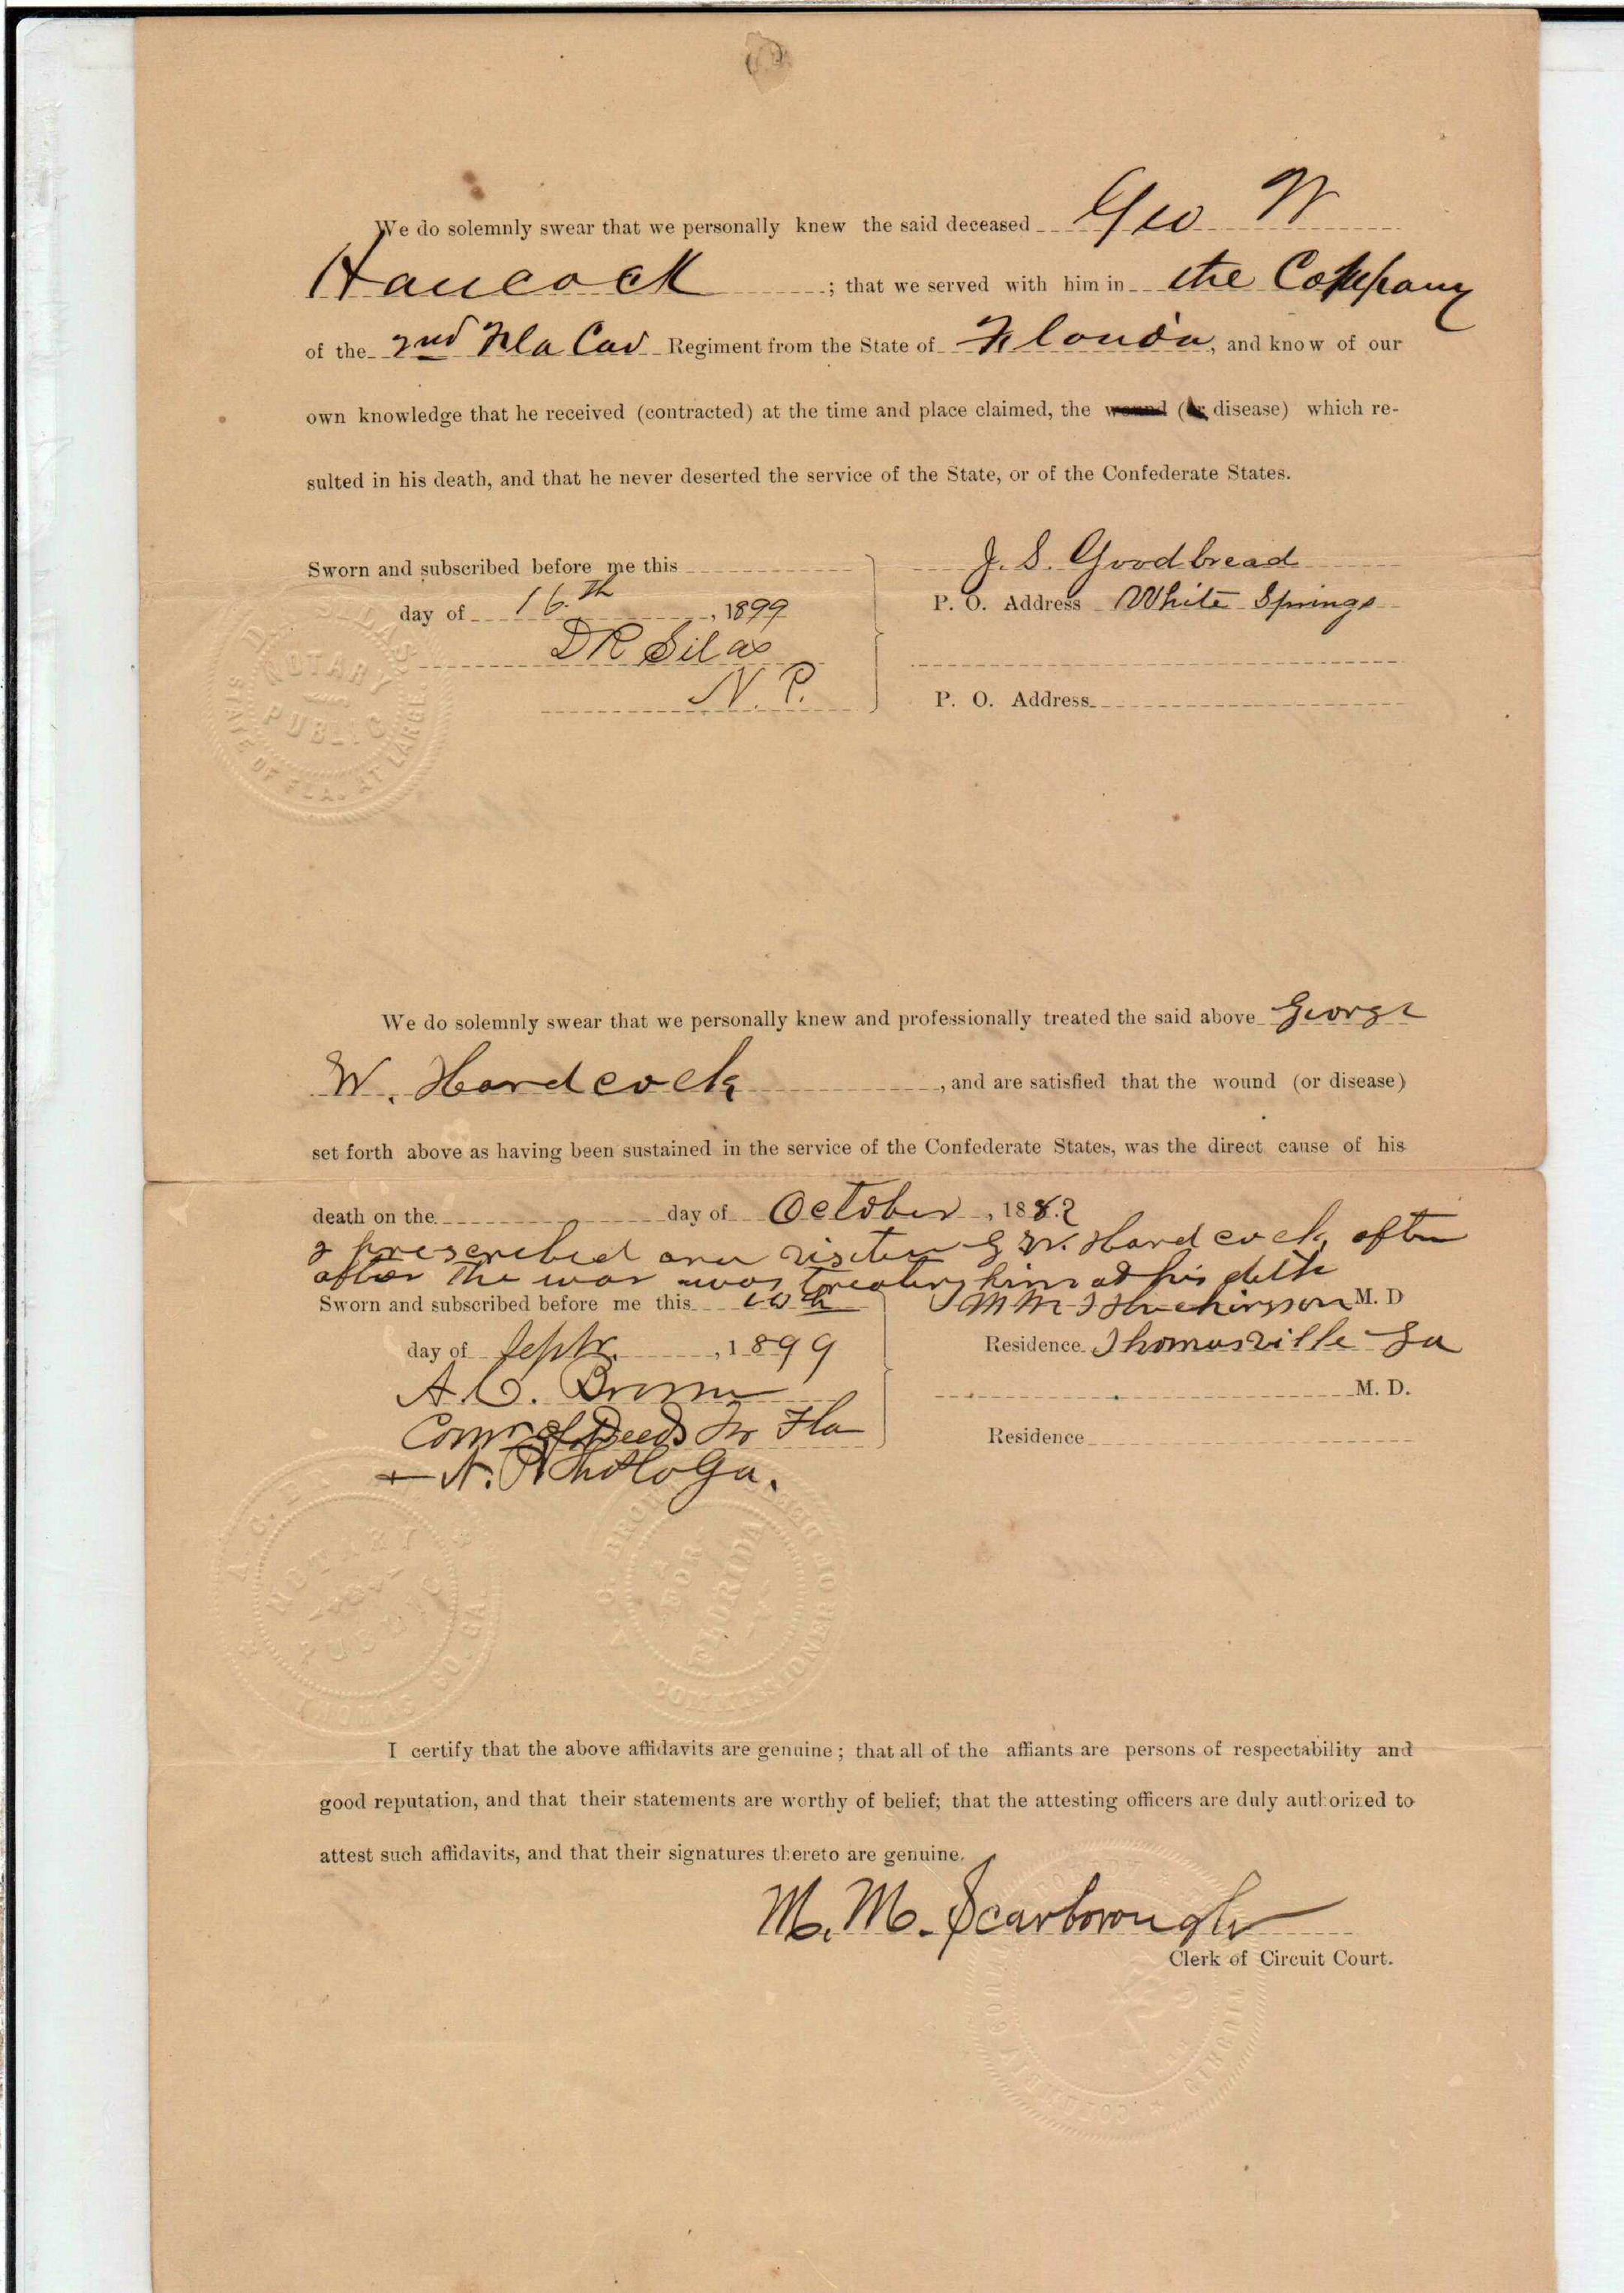 We do solemnly swear that we personally knew the said deceased Geo W
Hancock ; that we served with him in the Company
of the 2nd Fla Cav Regiment from the State of Florida, and know of our
own knowledge that he received (contracted) at the time and place claimed, the wound (or disease) which re-
sulted in his death, and that he never deserted the service of the State, or of the Confederate States.
Sworn and subscribed before me this
day of 16.th , 1899
D R Silas
N. P.
J. S. Goodbread
P. O. Address White Springs
P. O. Address
NOTARY
PUBLIC
STATE OF FLA. AT LARGE
We do solemnly swear that we personally knew and professionally treated the said above George
W. Hardcock , and are satisfied that the wound (or disease)
set forth above as having been sustained in the service of the Confederate States, was the direct cause of his
death on the day of October , 1882
I prescribed and visited G W. Hardcock, often
after the war was treating him at his deth
Sworn and subscribed before me this
day of Septr. , 1899
A. C. Brown
Comr of Deeds for Fla
+ N. P. Tho Co Ga.
M. D
Residence Thomasville Ga
M. D.
Residence
NOTARY
PUBLIC
THOMAS CO. GA.
A. C. BROWN
COMMISSIONER OF DEEDS
FOR
FLORIDA
I certify that the above affidavits are genuine; that all of the affiants are persons of respectability and
good reputation, and that their statements are worthy of belief; that the attesting officers are duly authorized to
attest such affidavits, and that their signatures thereto are genuine.
M. M. Scarborough
Clerk of Circuit Court.
CIRCUIT
COLUMBIA